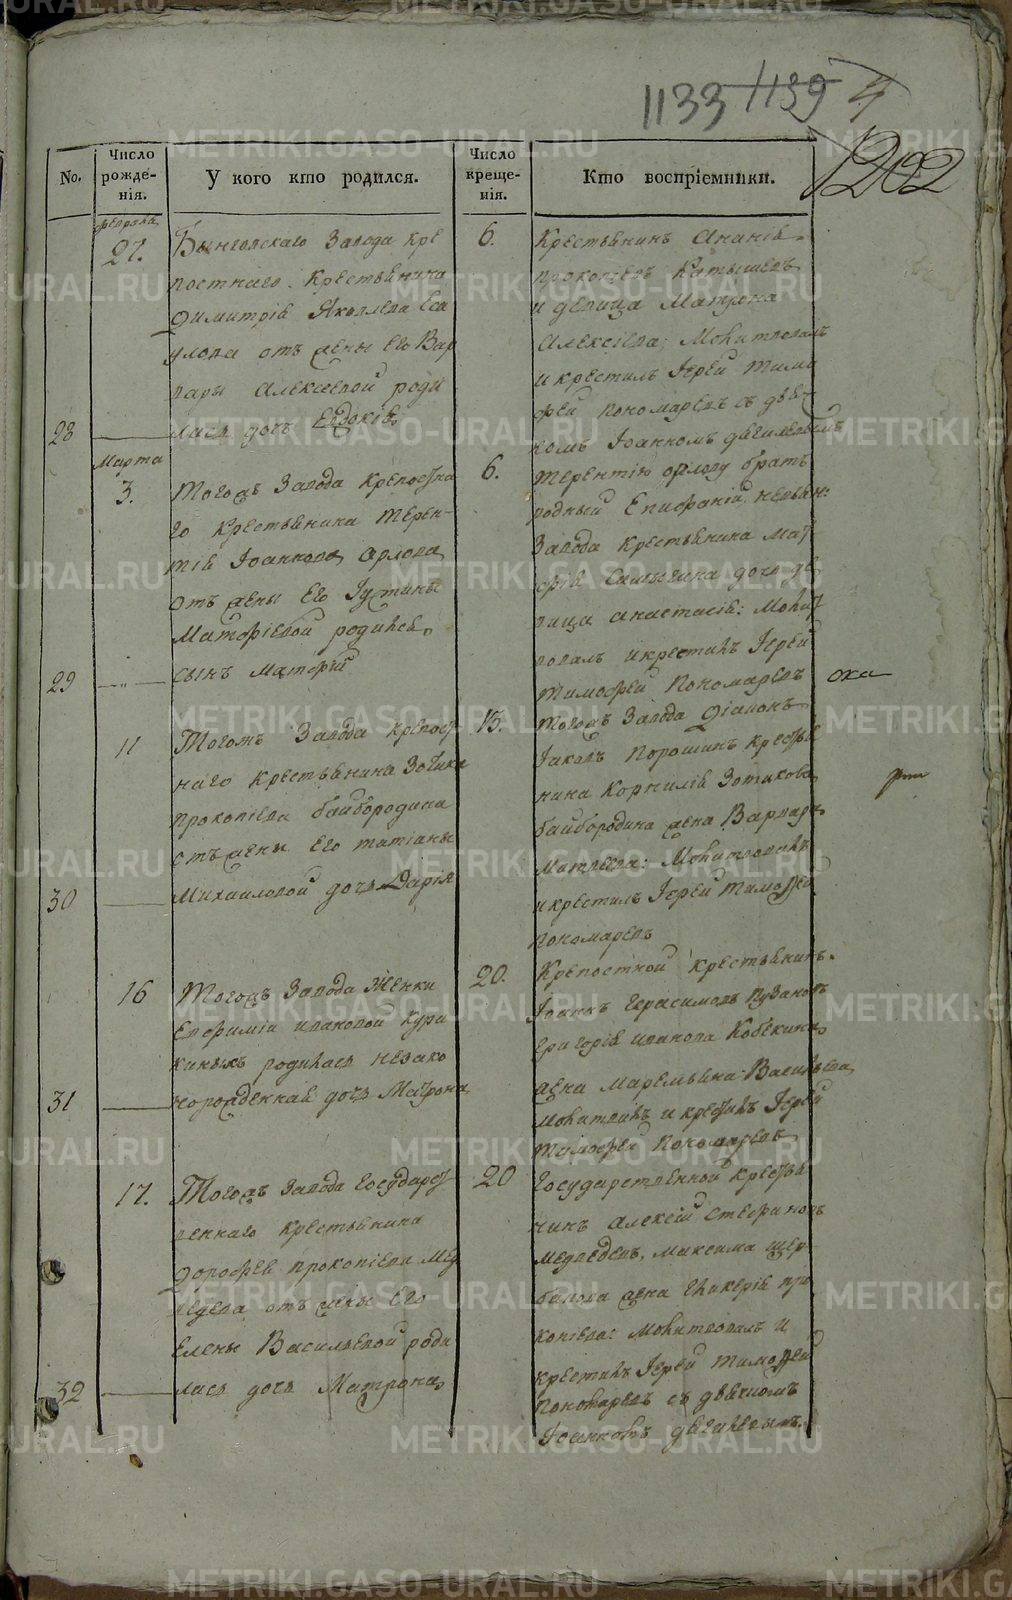 1133 1139 4
1202
No.
Число рожде-нія.
У кого кто родился.
Число креще-нія.
Кто воспріемники.
февраля
27.
Бынговскаго Завода кре
постнаго крестьянина
Димитрія Яковлева Еса
улова отъ жены его Вар
вары Алексеевой роди
28
лась дочь Евдокія
6.
Крестьянинъ Ананій
прокопьевъ Катышевъ
и девица Матрона
Алексіева: Молитвовалъ
и крестилъ Іерей Тимо
фей Пономаревъ съ дьяч
комъ Іоанномъ
Марта
3.
Тогожъ Завода крепостна
го крестьянина Терен
тія Іоаннова Орлова
отъ жены его Іустины
Матфіевой родился
29
сынъ Матфій
6.
Терентію орлову братъ
родный Епифаній
Завода крестьянина Мат
фія дочь де
вица анастасія: Молит
вовалъ и крестилъ Іерей
Тимофей Пономаревъ
11
Тогожъ Завода крепост
наго крестьянина Зотика
прокопіева байбородина
отъ жены его татіаны
30
Михаиловой дочь Дарія
15.
Тогожъ Завода Діаконъ
Іаковъ Порошинъ крестья
нина Корнилія Зотикова
байбородина жена Варвара
Матвеева: Молитвовалъ
и крестилъ Іерей Тимофей
Пономаревъ
16
Тогожъ Завода Женки
Евфиміи ивановой Кури
киныхъ родилась незако
31
норожденная дочь Матрона
20.
Крепостной крестьянинъ
Іоаннъ Герасимовъ Пузановъ
Григорія иванова Кобёкина
жена Маремьяна Васильева
Молитвовалъ и крестилъ Іерей
Тимофей Пономаревъ
17.
Тогожъ Завода Государст
веннаго крестьянина
Дорофея прокопіева Мед
ведева отъ жены его
Елены Васильевой роди
32
лась дочь Матрона
20
Государственной крестья
нинъ алексій Стефановъ
Медведевъ, Максима щер
бакова жена Гликерія про
копіева: Молитвовалъ и
крестилъ Іерей Тимофей
Пономаревъ съ дьячкомъ
Іоанномъ
METRIKI.GASO-URAL.RU